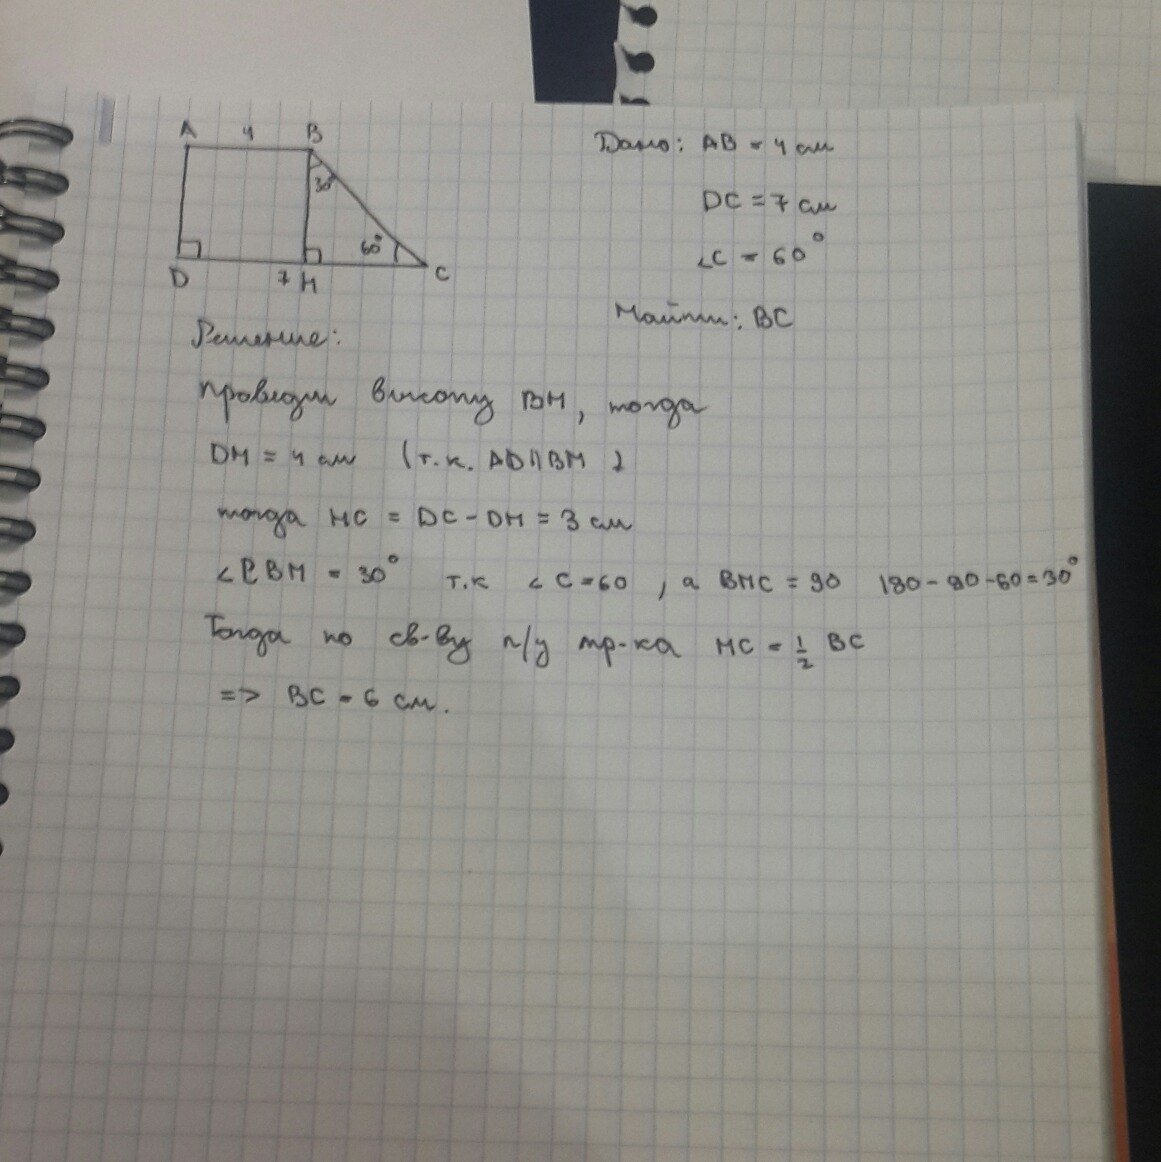 A 4 B
30°
60°
D 7 H C
Дано: AB = 4 см
DC = 7 см
∠C = 60°
Найти: BC
Решение:
проведем высоту BH, тогда
DH = 4 см (т.к. AD || BH)
тогда HC = DC - DH = 3 см
∠CBH = 30° т.к ∠C = 60, а BHC = 90 180 - 90 - 60 = 30°
Тогда по св-ву п/у тр-ка HC = 1/2 BC
=> BC = 6 см.